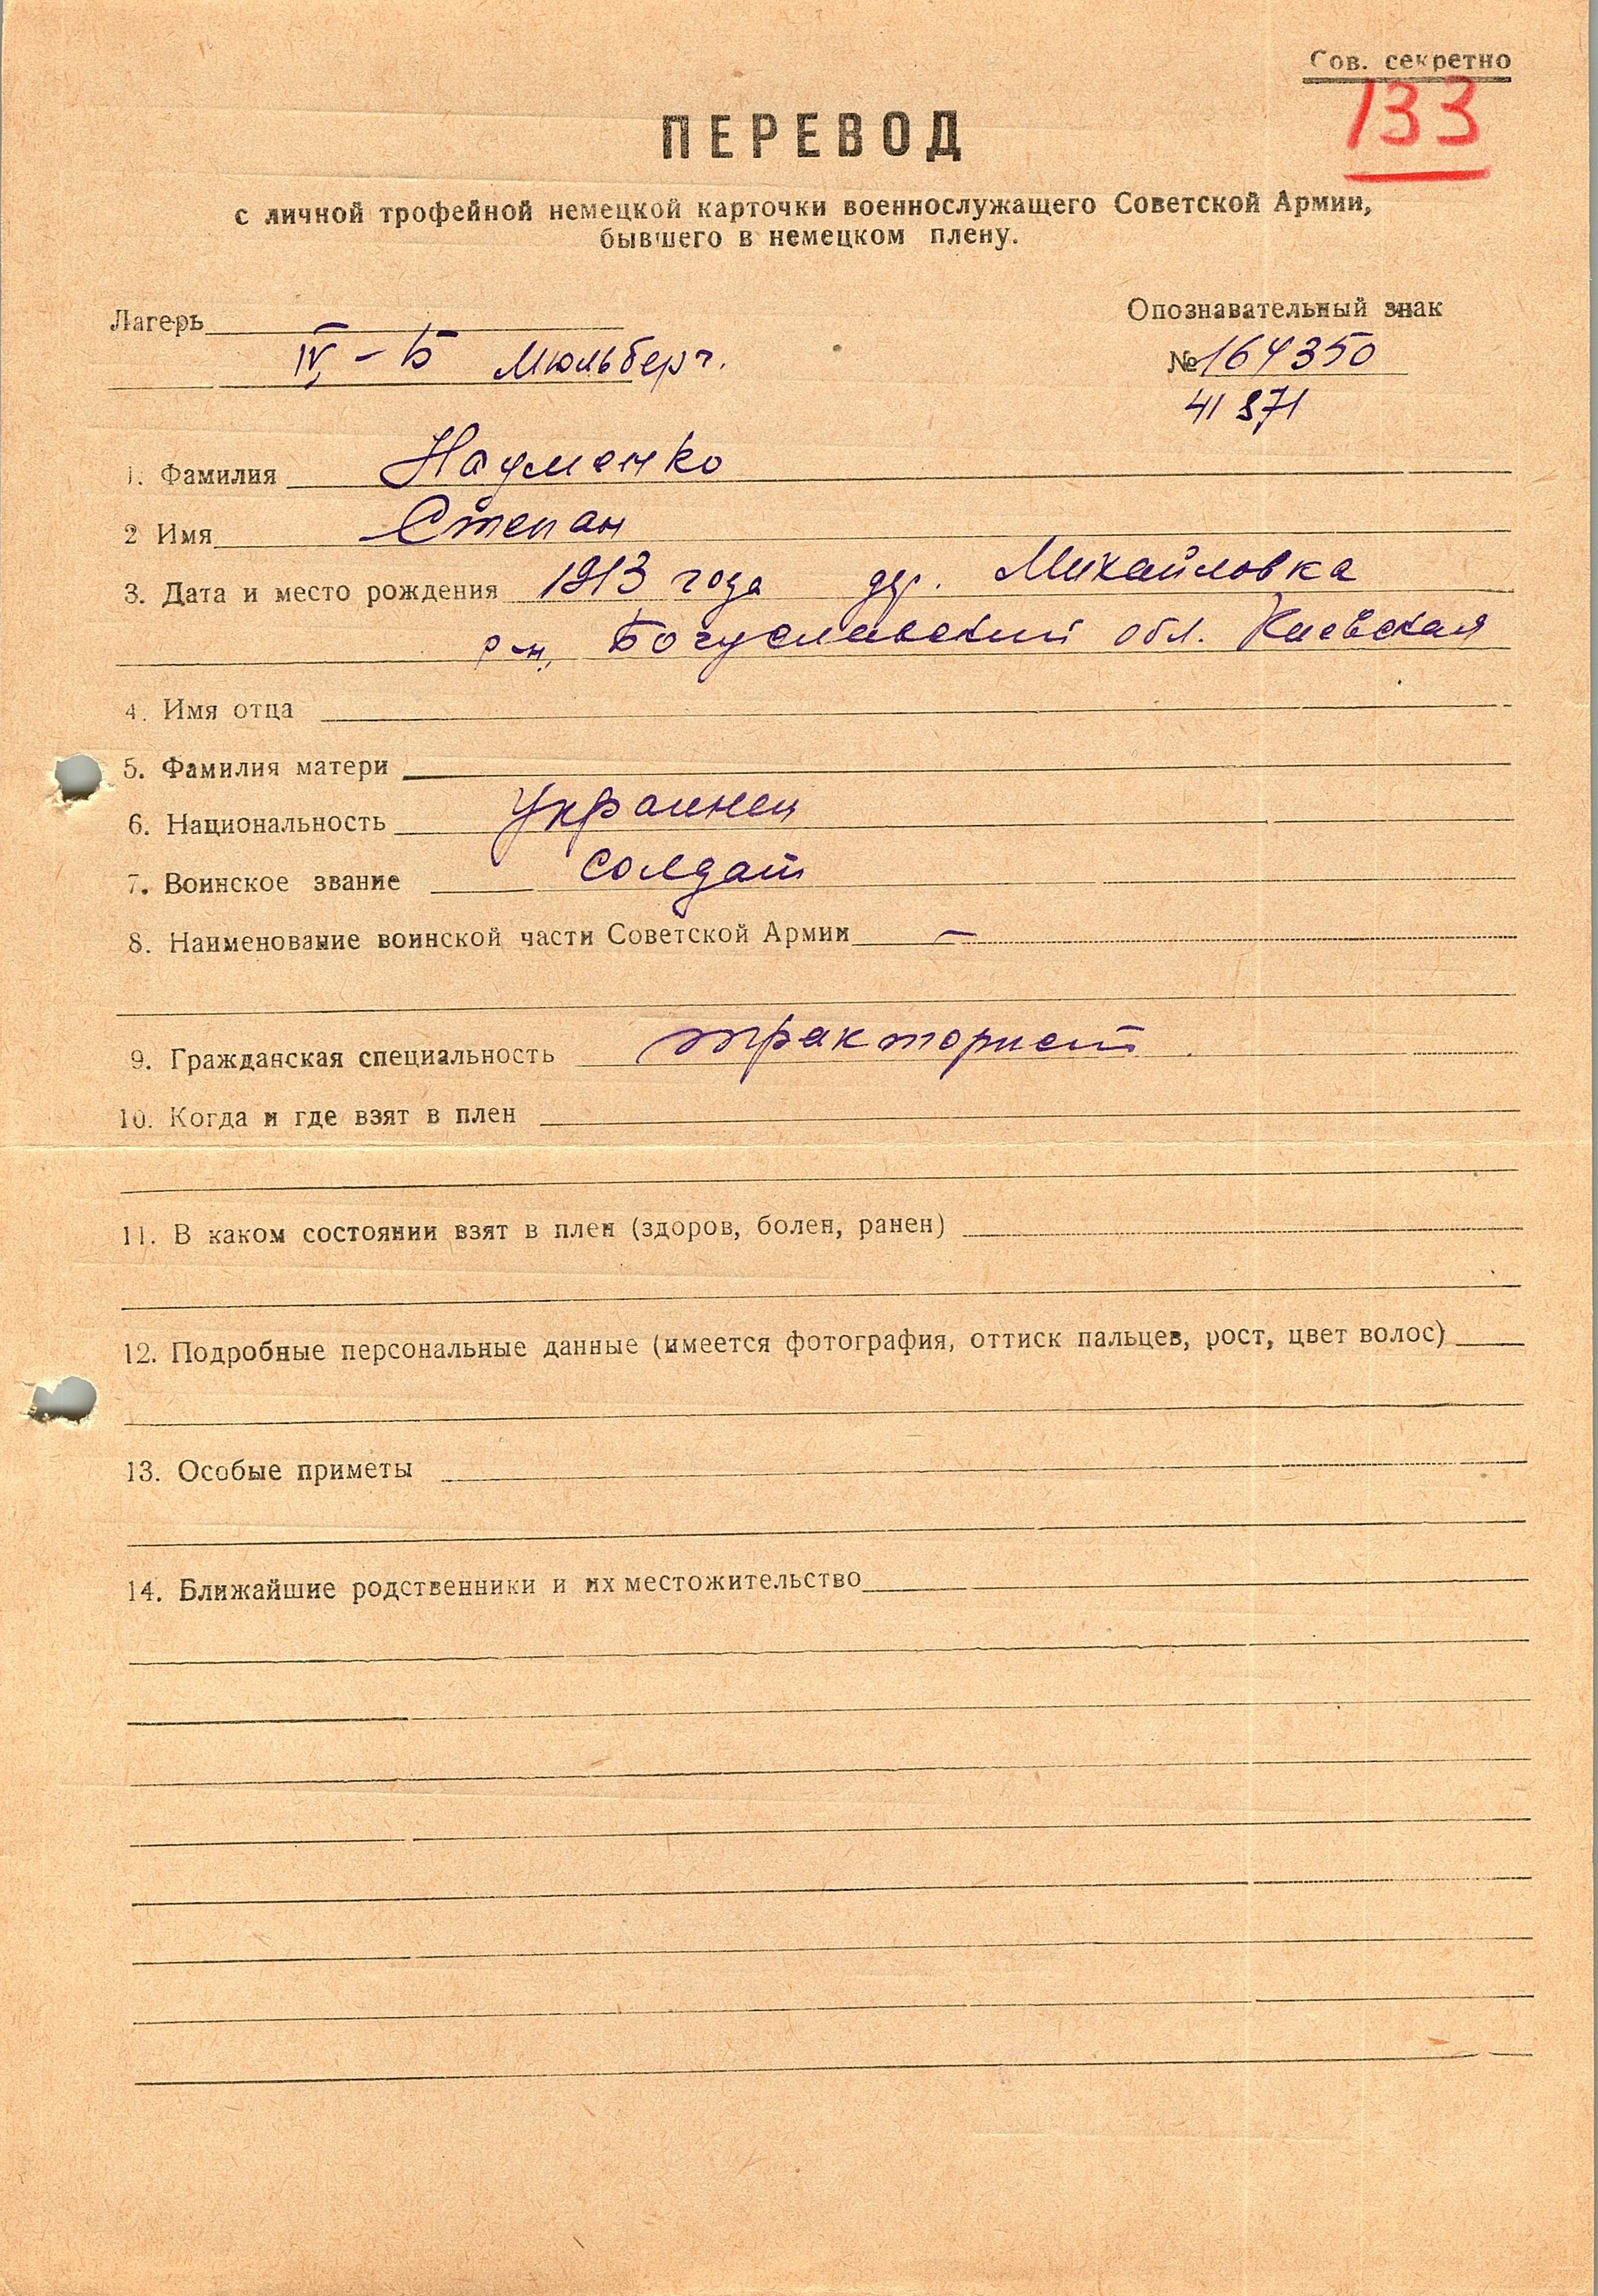 Сов. секретно
133
ПЕРЕВОД
с личной трофейной немецкой карточки военнослужащего Советской Армии,
бывшего в немецком плену.
Лагерь
Опознавательный знак
IV – Б Мюльберг.
№ 164350
41871
1. Фамилия Науменко
2 Имя Степан
3. Дата и место рождения 1913 года дер. Михайловка
р-н, Богуславский обл. Киевская
4. Имя отца
5. Фамилия матери
6. Национальность Украинец
7. Воинское звание солдат
8. Наименование воинской части Советской Армии –
9. Гражданская специальность тракторист
10. Когда и где взят в плен
11. В каком состоянии взят в плен (здоров, болен, ранен)
12. Подробные персональные данные (имеется фотография, оттиск пальцев, рост, цвет волос)
13. Особые приметы
14. Ближайшие родственники и их местожительство